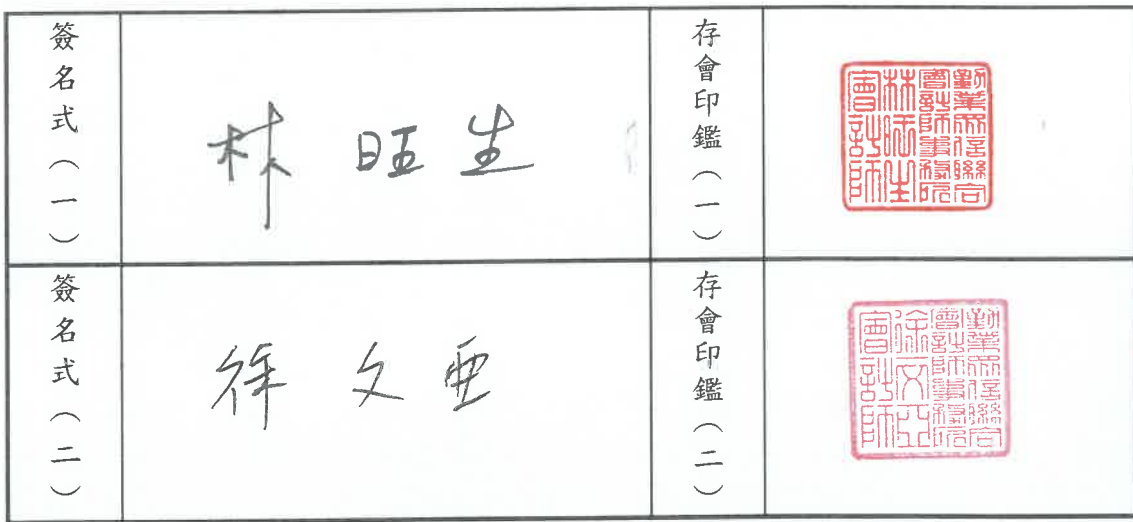 簽名式（一）
林旺生
存會印鑑（一）
勤業眾信聯合
會計師事務所
林旺生
會計師
簽名式（二）
徐文亞
存會印鑑（二）
勤業眾信聯合
會計師事務所
徐文亞
會計師